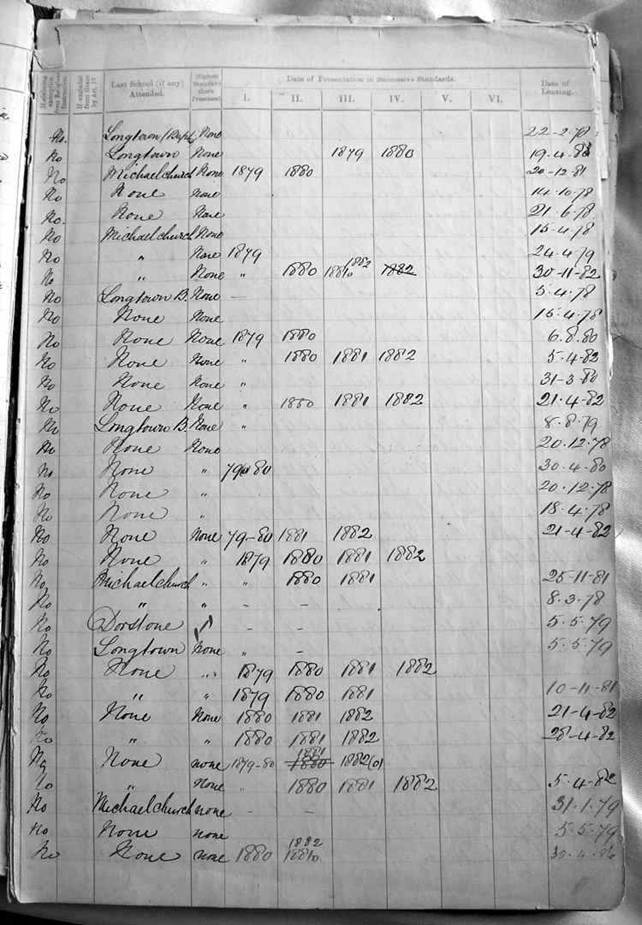 Last School (if any) Attended. Highest Standard there Presented Date of Presentation in Successive Standards. Date of Leaving.
I. II. III. IV. V. VI.
No Longtown None 22-2-78
No Longtown None 1879 1880
No Michaelchurch None 1879 1880 20-12-81
No None None 14-10-78
No None None 21-6-78
No Michaelchurch None 15-4-78
No " None 1879 24-4-79
No " None " 1880 1882 30-11-82
No Longtown B. None 5-4-78
No None None 15-4-78
No None None 1879 1880 6-8-80
No None None " 1880 1881 1882 5-4-82
No None None " 31-3-80
No None None " 1880 1881 1882 21-4-82
No Longtown B. None " 8-8-79
No None None 20-12-78
No None " 30-4-80
No None " 20-12-78
No None " 18-4-78
No None None 79-80 1881 1882 21-4-82
No None " 1879 1880 1881 1882
No Michaelchurch " " 1880 1881 25-11-81
No " " - - 8-3-78
No Dorstone - - 5-5-79
No Longtown None " - 5-5-79
No None " 1879 1880 1881 1882
No " " 1879 1880 1881 10-11-81
No None None 1880 1881 1882 21-4-82
No " " 1880 1881 1882 28-4-82
No None none 1879-80 1881 1880
No " None " 1880 1881 1882 5-4-82
No Michaelchurch none - - 31-1-79
No None none 5-5-79
No None none 1880 1882